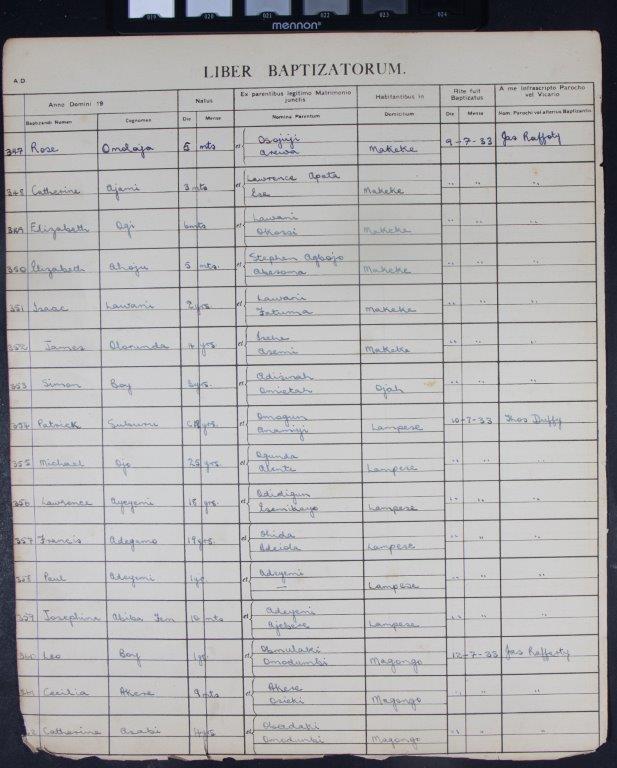 019 020 021 022 023 024
mennon
LIBER BAPTIZATORUM.
A.D.
Anno Domini 19 Natus Ex parentibus legitimo Matrimonio junctis Habitantibus in Rite fuit Baptizatus A me infrascripto Parocho vel Vicario
Baptizandi Nomen Cognomen Die Mense Nomina Parentum Domicilium Die Mense Nom. Parochi vel alterius Baptizantis
347 Rose Omolaja 5 mts et Osojiji Arewa Makeke 9-7-33 Jas Rafferty
348 Catherine Ajami 3 mts et Lawrence Apata Ese Makeke " " "
349 Elizabeth Ogi 6 mts et Lawani Okossi Makeke " " "
350 Elizabeth Ahoju 5 mts. et Stephen Agbojo Abesoma Makeke " " "
351 Isaac Lawani 2 yrs. et Lawani Fatuma Makeke " " "
352 James Olorunda 4 yrs. et Asemi Makeke " " "
353 Simon Boy yrs. et Omietah Ojah " " "
354 Patrick yrs. et Omogun Lampese 10-7-33 Thos Duffy
355 Michael Ojo 25 yrs. et Ogunda Alente Lampese " " "
356 Lawrence Ayeyemi 18 yrs. et Odidigun Lampese " " "
357 Francis Adegamo 19 yrs. et Ohida Adeiola Lampese " " "
358 Paul Adeyemi 1 yr. et Adeyemi — Lampese " " "
359 Josephine Abiba Fem 10 mts et Adeyemi Ajebere Lampese " " "
360 Leo Boy 1 yr. et Omodumbi Magongo 12-7-33 Jas Rafferty
361 Cecilia Akere 9 mts et Akere Osieki Magongo " " "
2 Catherine Asabi 4 yrs et Obadaki Omodumbi Magongo " " "